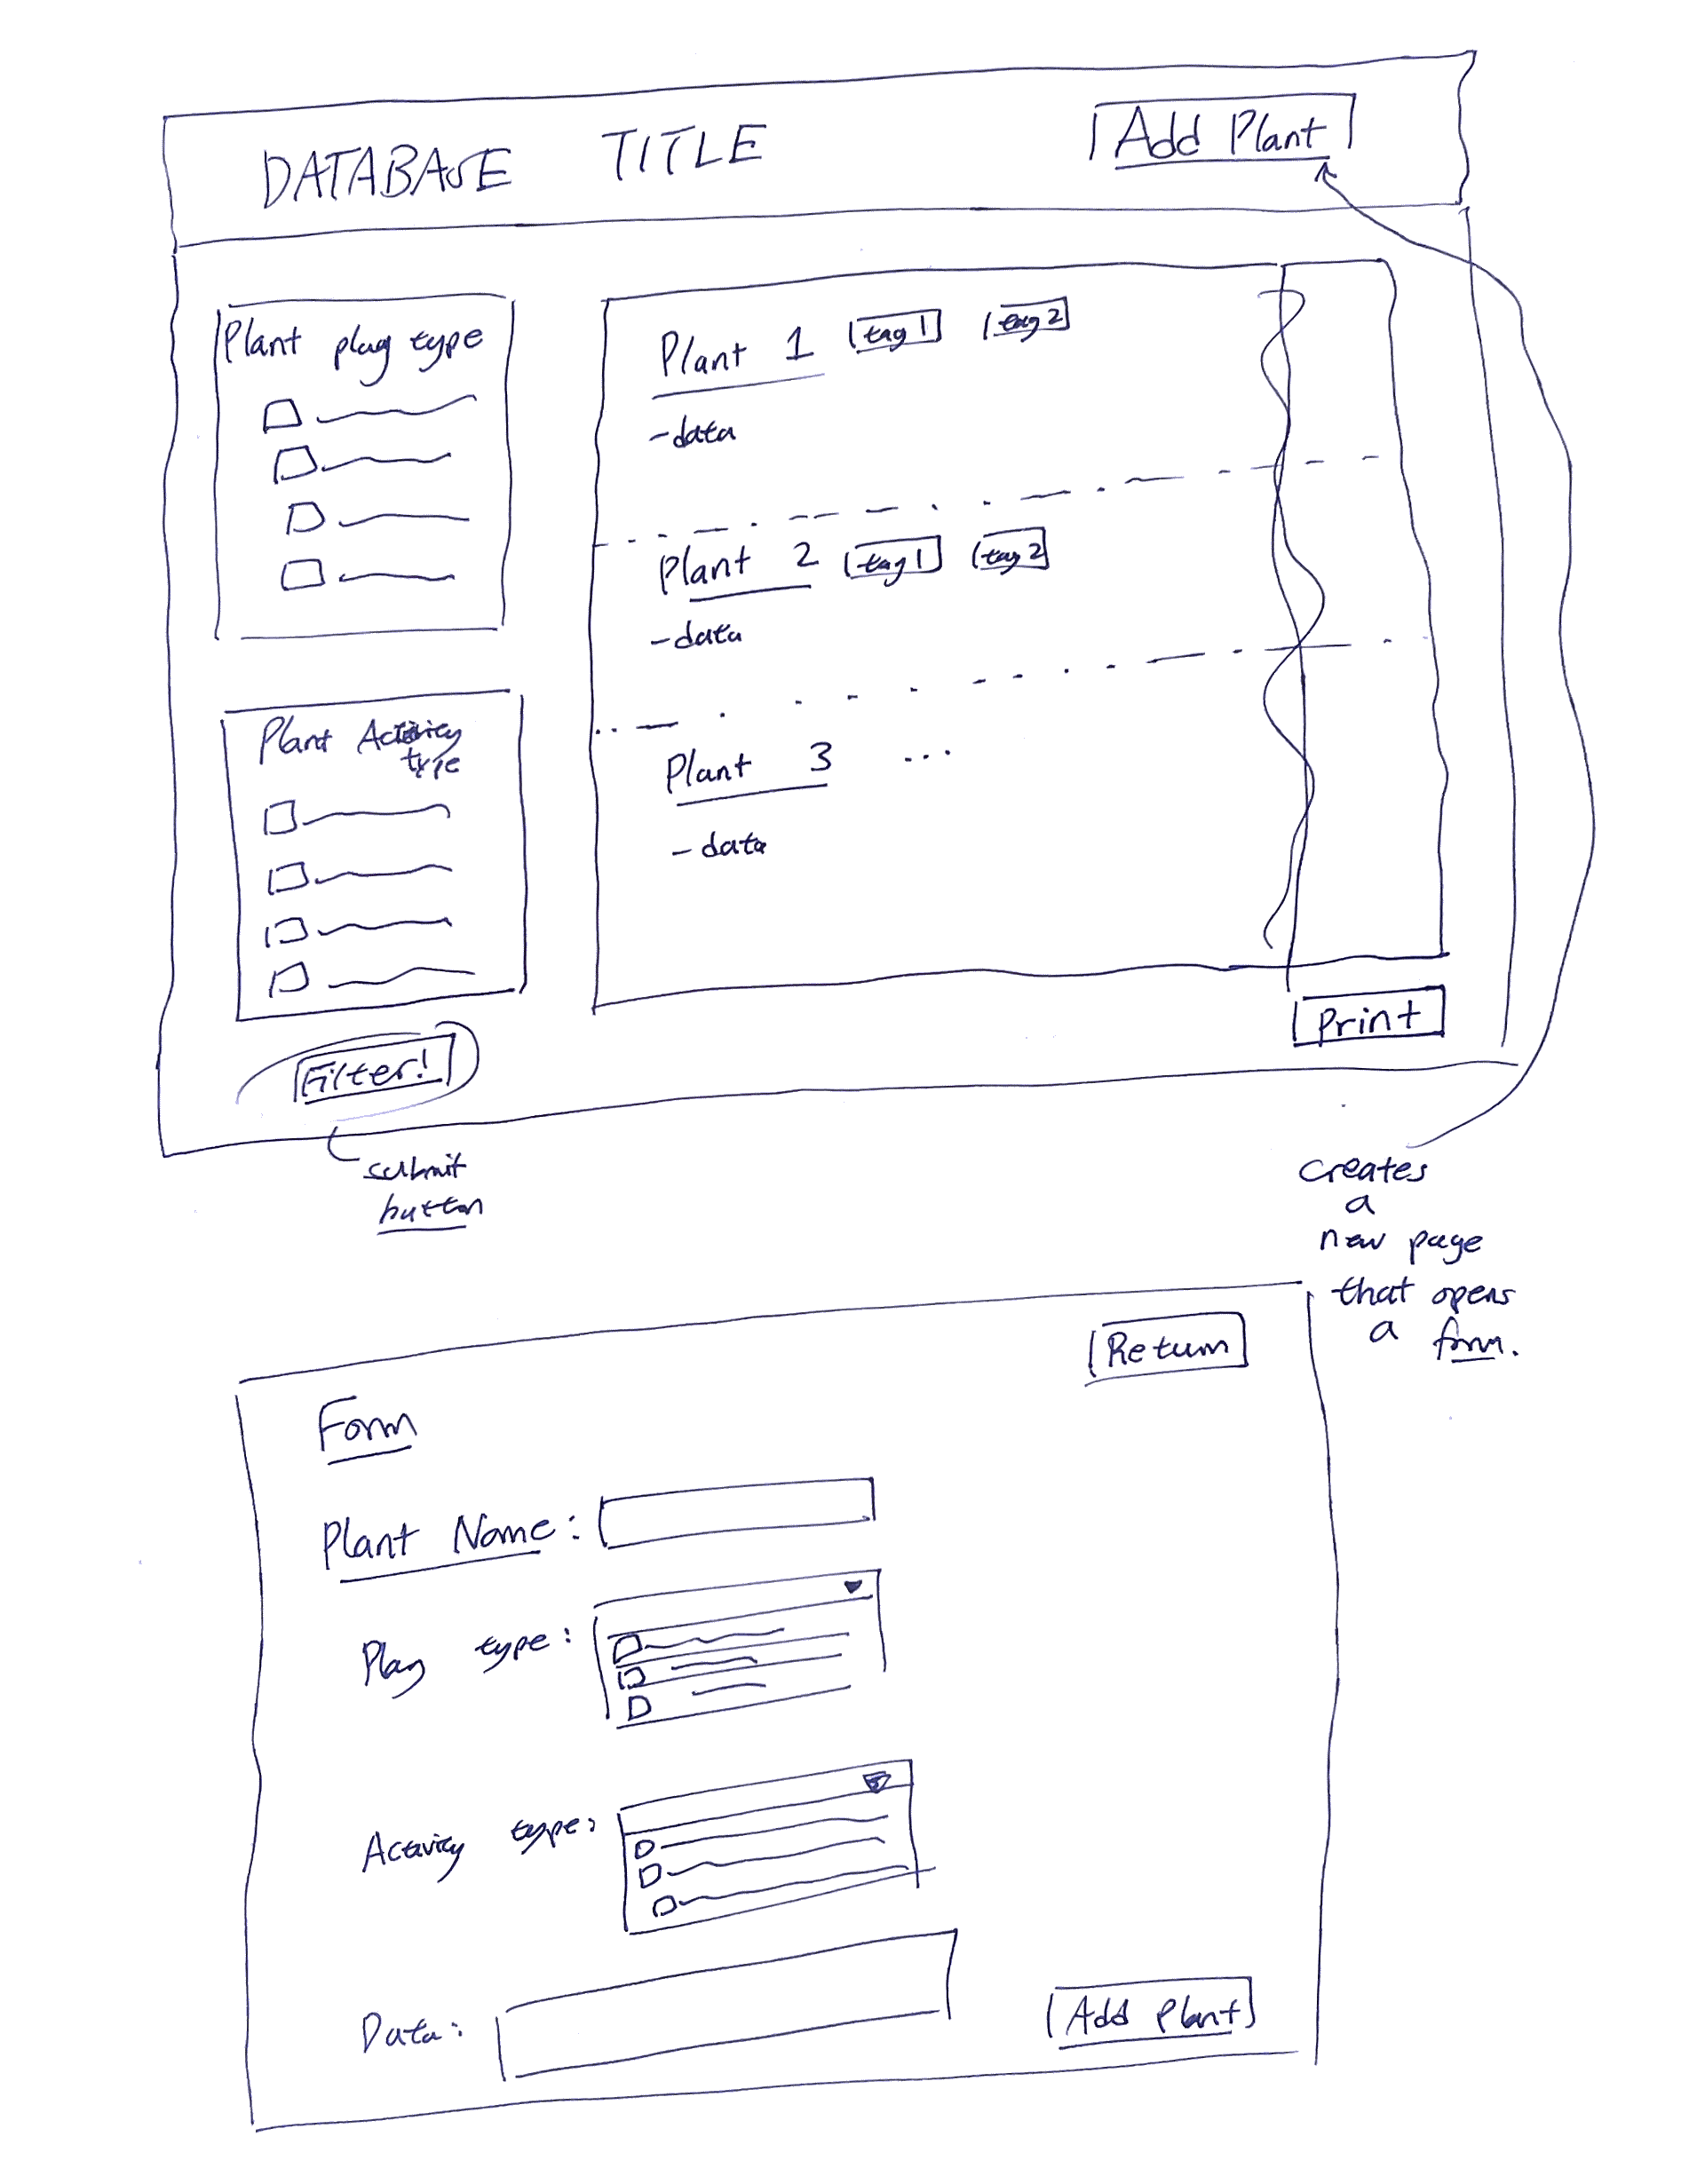 DATABASE TITLE
Add Plant
Plant play type
Plant Activity
type
Filter!
submit
button
Plant 1 tag 1 tag 2
- data
Plant 2 tag 1 tag 2
- data
Plant 3 ...
- data
Print
creates
a
new page
that opens
a form.
Return
Form
Plant Name:
Play type:
Activity type:
Data:
Add Plant